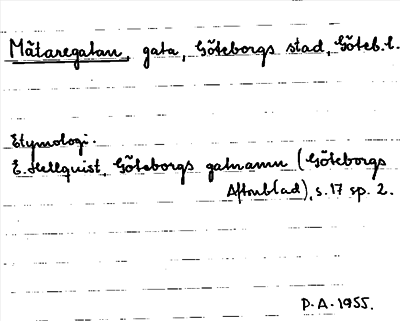 Mätaregatan, gata, Göteborgs stad, Göteb. l.
Etymologi.
E. Hellquist, Göteborgs gatnamn (Göteborgs
Aftonblad), s. 17 sp. 2.
P. A. 1955.